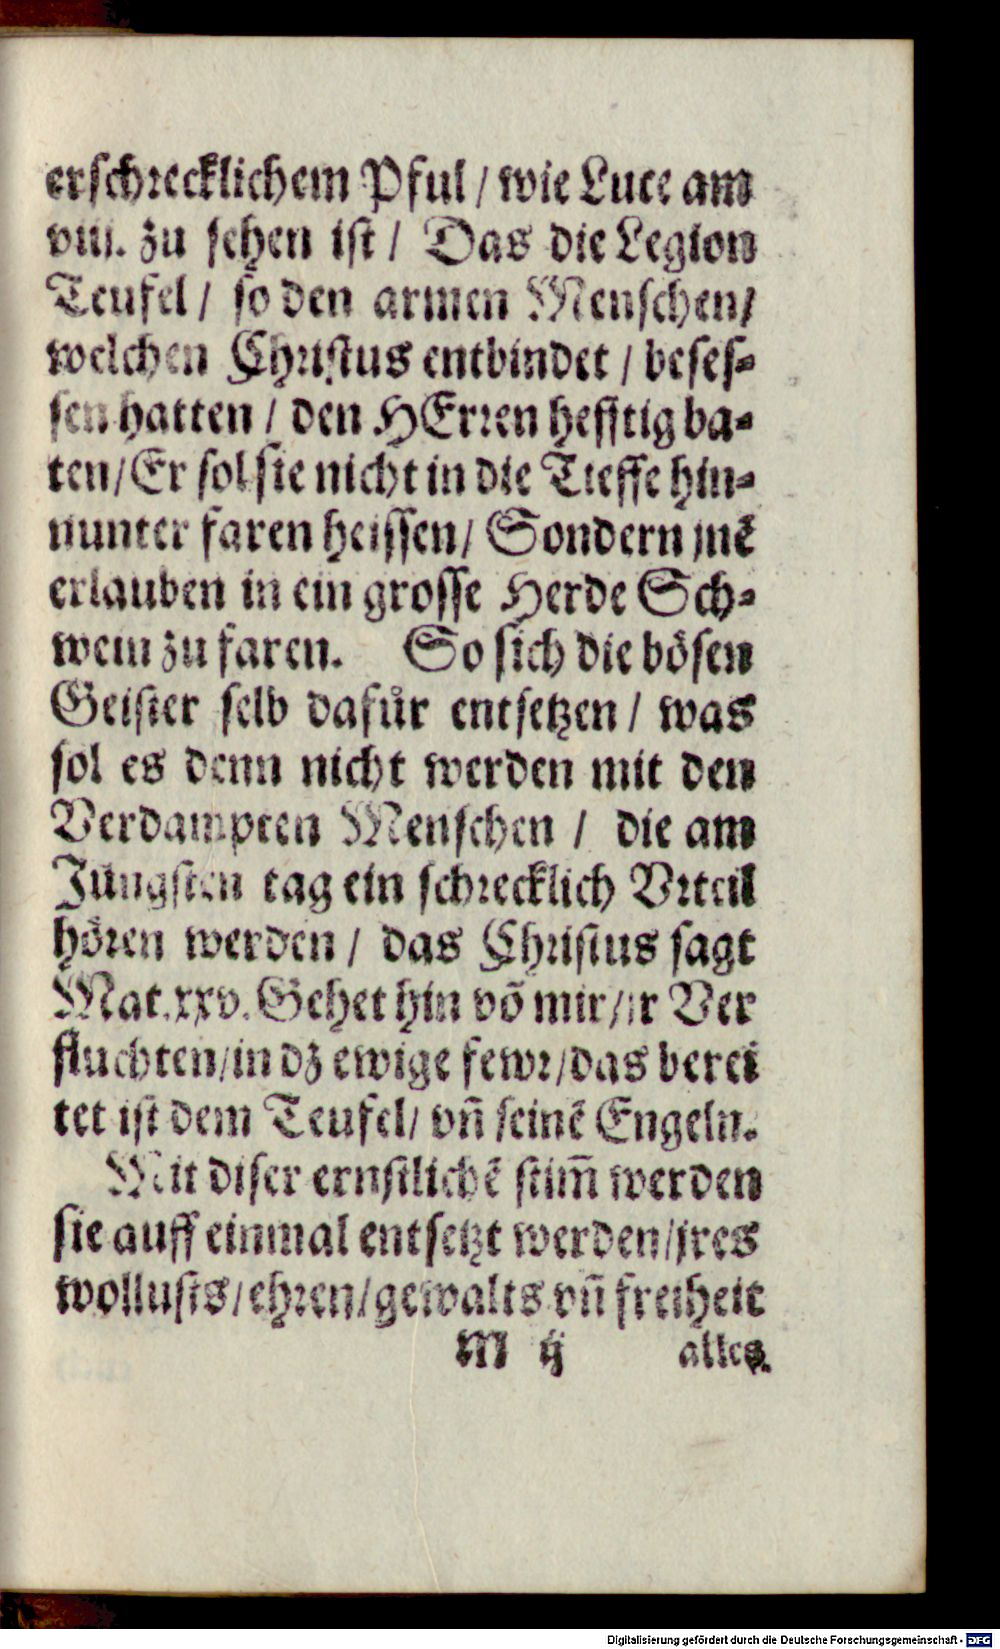 erschrecklichem Pful / wie Luce am
viii. zu sehen ist / Das die Legion
Teufel / so den armen Menschen /
welchen Christus entbindet / beses-
sen hatten / den HErren hefftig ba-
ten / Er sol sie nicht in die Tieffe hin-
nunter faren heissen / Sondern jnē
erlauben in ein grosse Herde Sch-
wein zu faren. So sich die bösen
Geister selb dafür entsetzen / was
sol es denn nicht werden mit den
Verdampten Menschen / die am
Jüngsten tag ein schrecklich Vrteil
hören werden / das Christus sagt
Mat. xxv. Gehet hin võ mir / jr Ver
fluchten / in dz ewige fewr / das berei
tet ist dem Teufel / vñ seinē Engeln.
Mit diser ernstlichē stim̃ werden
sie auff einmal entsetzt werden / jres
wollusts / ehren / gewalts vñ freiheit
M ij alles.
Digitalisierung gefördert durch die Deutsche Forschungsgemeinschaft - DFG